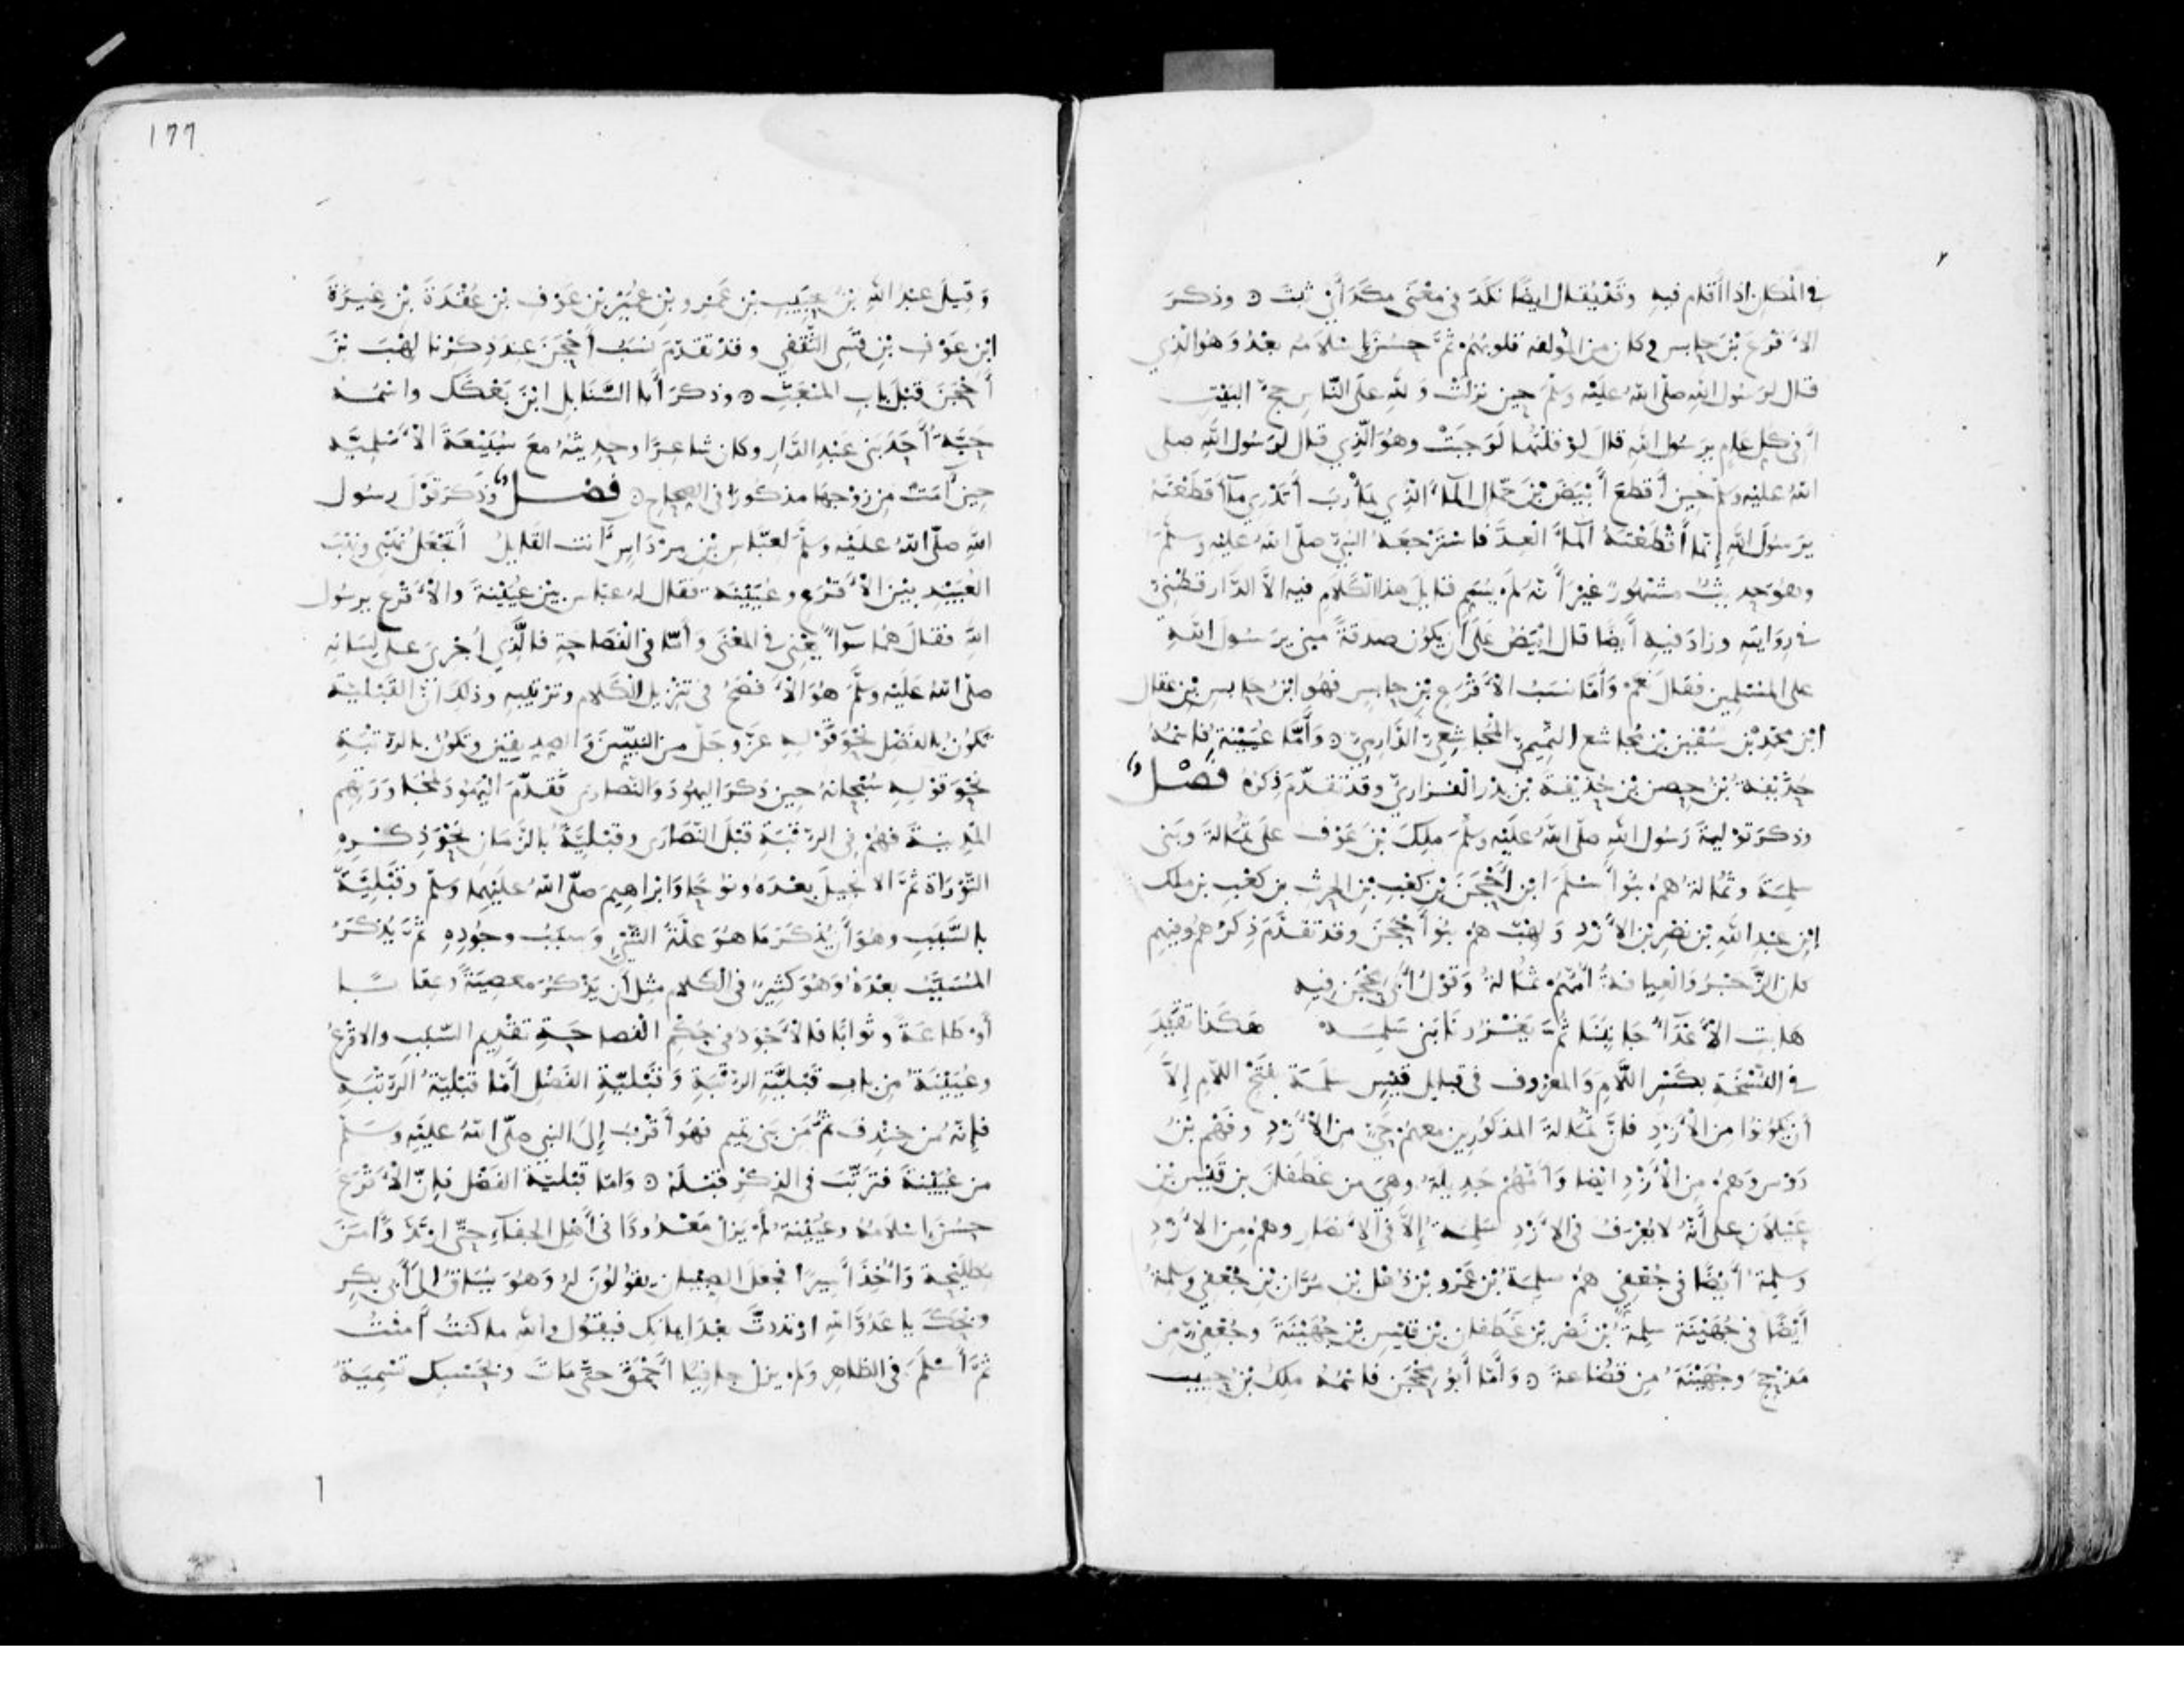 في المكان اذا أقام فيه وقد يقال ايضا نكد في معنى مكد أي ثبت ⊙ وذكر
الأقرع بن حابس وكان من المؤلفة قلوبهم ثم حسن إسلامه بعد وهو الذي
قال لرسول الله صلى الله عليه وسلم حين نزلت ولله على الناس حج البيت
أفي كل عام يرسول الله قال لو قلتها لوجبت وهو الذي قال لرسول الله صلى
الله عليه وسلم حين أقطع أبيض بن حمال الماء الذي بمأرب أتدري ما أقطعته
يرسول الله إنما أقطعته الماء العد فاسترجعه النبي صلى الله عليه وسلم
وهو حديث مشهور غير أنه لم يسم قايل هذا الكلام فيه الا الدارقطني
في روايته وزاد فيه أيضا قال ابيض على أن يكون صدقة مني يرسول الله
على المسلمين فقال نعم وأما نسب الأقرع بن حابس فهو ابن حابس بن عقال
ابن محمد بن سفين بن مجاشع التميمي المجاشعي الدارمي ⊙ وأما عيينة فاسمه
حذيفة بن حصن بن حذيفة بن بدر الفزاري وقد تقدم ذكره فصل
وذكر تولية رسول الله صلى الله عليه وسلم ملك بن عوف على ثمالة وبني
سلمة وثمالة هم بنو أسلم ابن أحجن بن كعب بن الحرث بن كعب بن ملك
ابن عبد الله بن نصر بن الأزد ولهب هم بنو أحجن وقد تقدم ذكرهم وفيهم
كان الزجر والعيافة أمهم ثمالة وقول أبي محجن فيه
هابت الأعداء جانبنا ثم يغزونا بني سلمه هكذا تقيد
في النسخة بكسر اللام والمعروف في قبايل قيس سلمة بفتح اللام إلا
أن يكونوا من الأزد فان ثمالة المذكورين معهم حي من الأزد وفهم بن
دوس وهم من الأزد ايضا وأمهم جديلة وهي من غطفان بن قيس بن
عيلان على أنه لا يعرف في الأزد سلمة إلا في الأنصار وهم من الأزد
وسلمة أيضا في جعفي هم سلمة بن عمرو بن ذهل بن مران بن جعفي وسلمة
أيضا في جهينة سلمة بن نصر بن غطفان بن قيس بن جهينة وجعفي من
مذحج وجهينة من قضاعة ⊙ وأما أبو محجن فاسمه ملك بن حبيب
١٦٦
وقيل عبد الله بن حبيب بن عمرو بن عمير بن عوف بن عقدة بن غيرة
ابن عوف بن قسي الثقفي وقد تقدم نسب أحجن عند ذكرنا لهب بن
أحجن قبل باب المبعث ⊙ وذكر أبا السنابل ابن بعكك واسمه
حبة أحد بني عبد الدار وكان شاعرا وحديثه مع سبيعة الأسلمية
حين آمت من زوجها مذكور في الصحاح ⊙ فصل وذكر قول رسول
الله صلى الله عليه وسلم لعباس بن مرداس أنت القايل أتجعل نهبي ونهب
العبيد بين الأقرع وعيينة فقال له عباس بين عيينة والأقرع يرسول
الله فقال هما سواء يعني في المعنى وأما في الفصاحة فالذي أجرى على لسانه
صلى الله عليه وسلم هو الأفصح في تنزيل الكلام وترتيبه وذلك أن القبلية
تكون بالفضل نحو قوله عز وجل من النبيين والصديقين وتكون بالرتبة
نحو قوله سبحانه حين ذكر اليهود والنصارى فقدم اليهود لمجاورتهم
المدينة فهم في الرتبة قبل النصارى وقبلية بالزمان نحو ذكره
التوراة ثم الانجيل بعده ونوحا وابراهيم صلى الله عليهما وسلم وقبلية
بالسبب وهو أن يذكر ما هو علة الشيء وسبب وجوده ثم يذكر
المسبب بعده وهو كثير في الكلام مثل أن يذكر معصية وعقابا
أو طاعة وثوابا فالأجود في حكم الفصاحة تقديم السبب والاقرع
وعيينة من باب قبلية الرتبة وقبلية الفضل أما قبلية الرتبة
فإنه من خندف ثم من بني تميم فهو أقرب إلى النبي صلى الله عليه وسلم
من عيينة فترتب في الذكر قبله ⊙ واما قبلية الفضل فإن الأقرع
حسن إسلامه وعيينة لم يزل معدودا في أهل الجفاء حتى ارتد وآمن
بطليحة وأخذ أسيرا فجعل الصبيان يقولون له وهو يساق إلى أبي بكر
ويحك يا عدو الله ارتددت بعد ايمانك فيقول والله ما كنت آمنت
ثم أسلم في الظاهر ولم يزل جافيا أحمق حتى مات وبحسبك تسمية